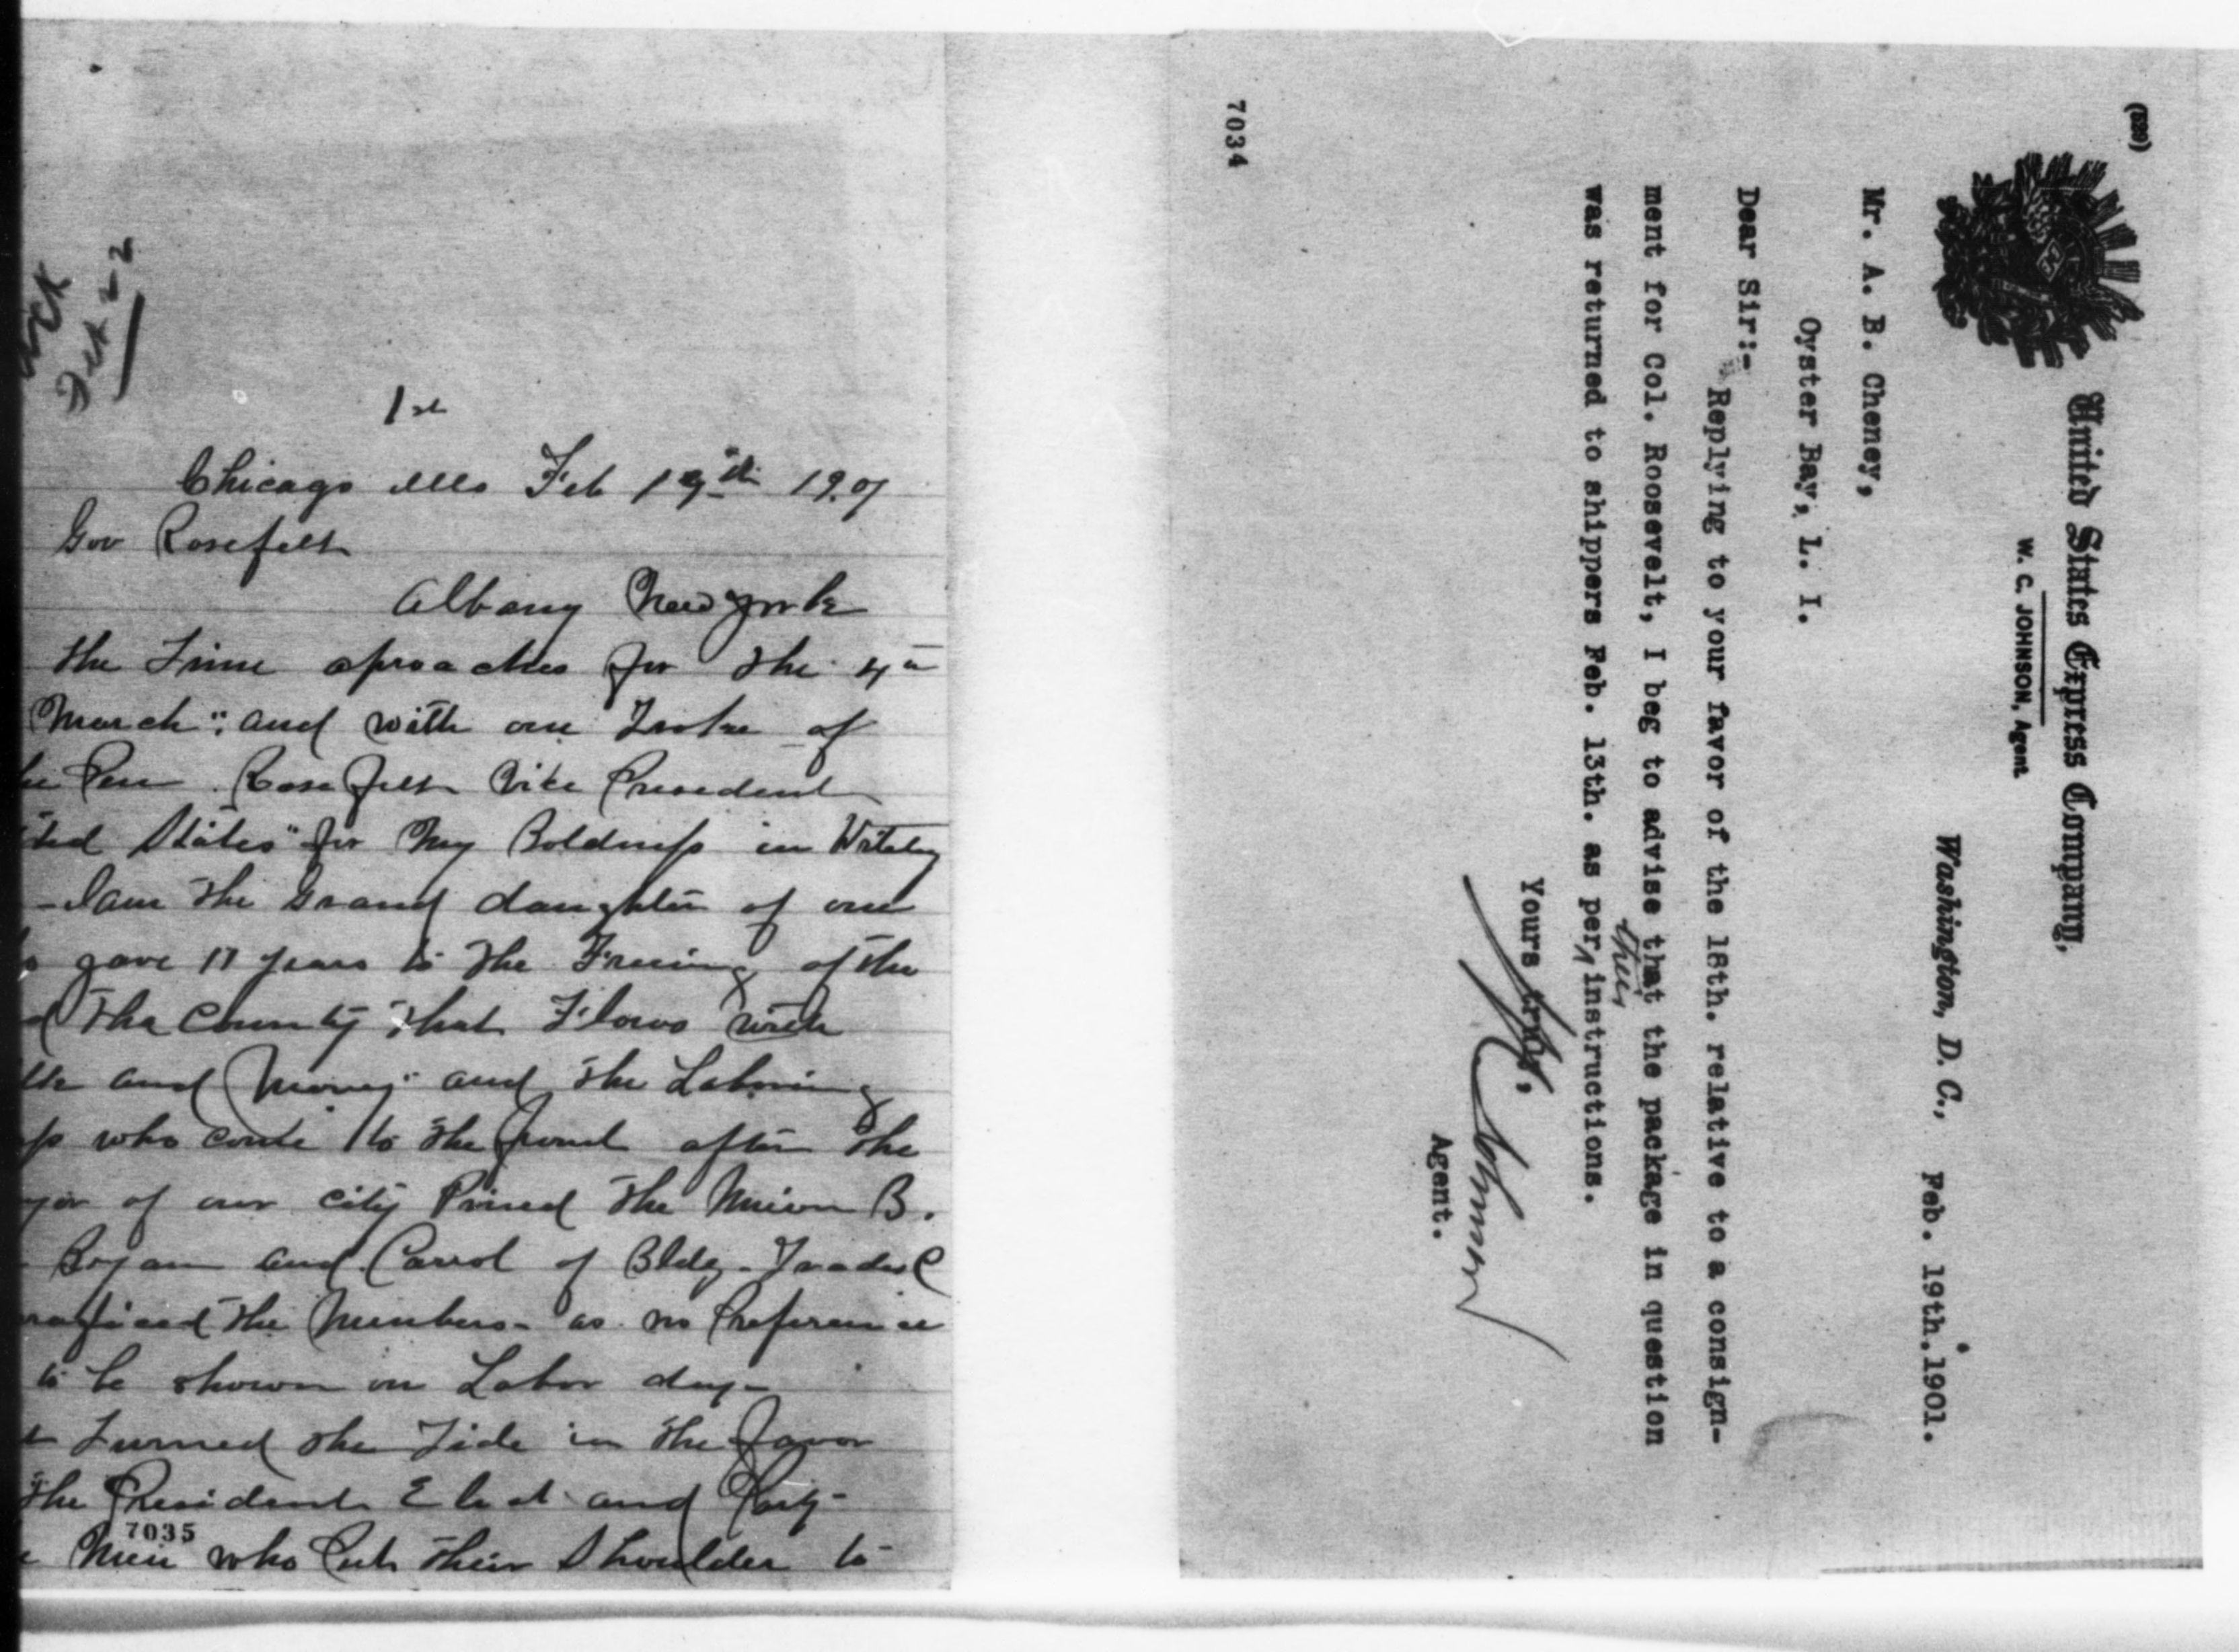 Ack
Feb 22
1st
Chicago Ills Feb 19th 1901
Gov Rosefelt
Albany New york
the Time aproaches for the 4th
March": and with one of
Pen Rosefelt Vice President
ted States" for My Boldness in
I am the Grand daughter of one
gave 17 years to the Freeing of the
The Country that Flows with
and and the Laboring
who come to the front after the
yor of our city the Union B.
Bogan and Carrol of Bldg - Trades C
the Members - as no Preference
to be shown on Labor day -
Turned the Tide in the favor
the President Elect and Party -
7035
Men who Put their Shoulder to
(539)
United States Express Company,
W. C. JOHNSON, Agent
Washington, D. C., Feb. 19th. 1901.
Mr. A. B. Cheney,
Oyster Bay, L. I.
Dear Sir:-
Replying to your favor of the 18th. relative to a consign-
ment for Col. Roosevelt, I beg to advise that the package in question
their
was returned to shippers Feb. 13th. as per instructions.
Yours truly,
W C Johnson
Agent.
7034